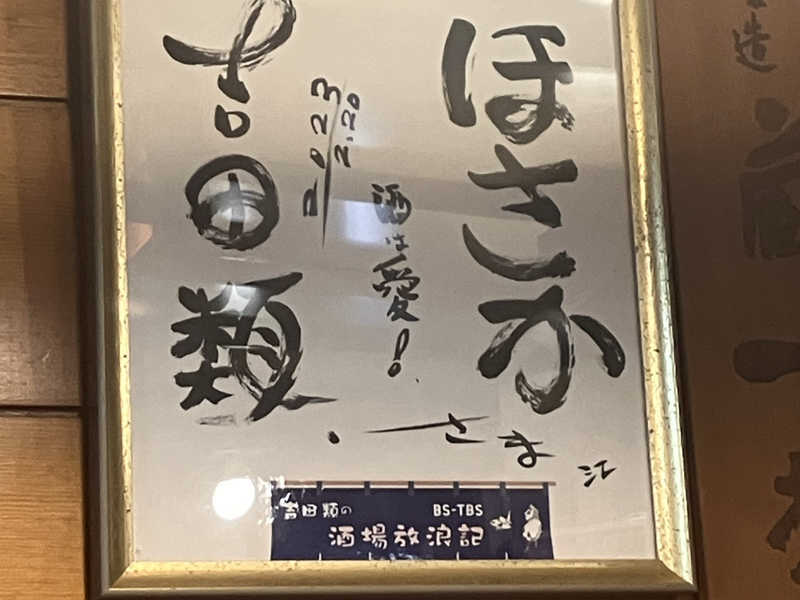 ほさか
さま江
酒は愛!
2023
2.20
吉田類
吉田類の
BS-TBS
酒場放浪記
造
蔵
一